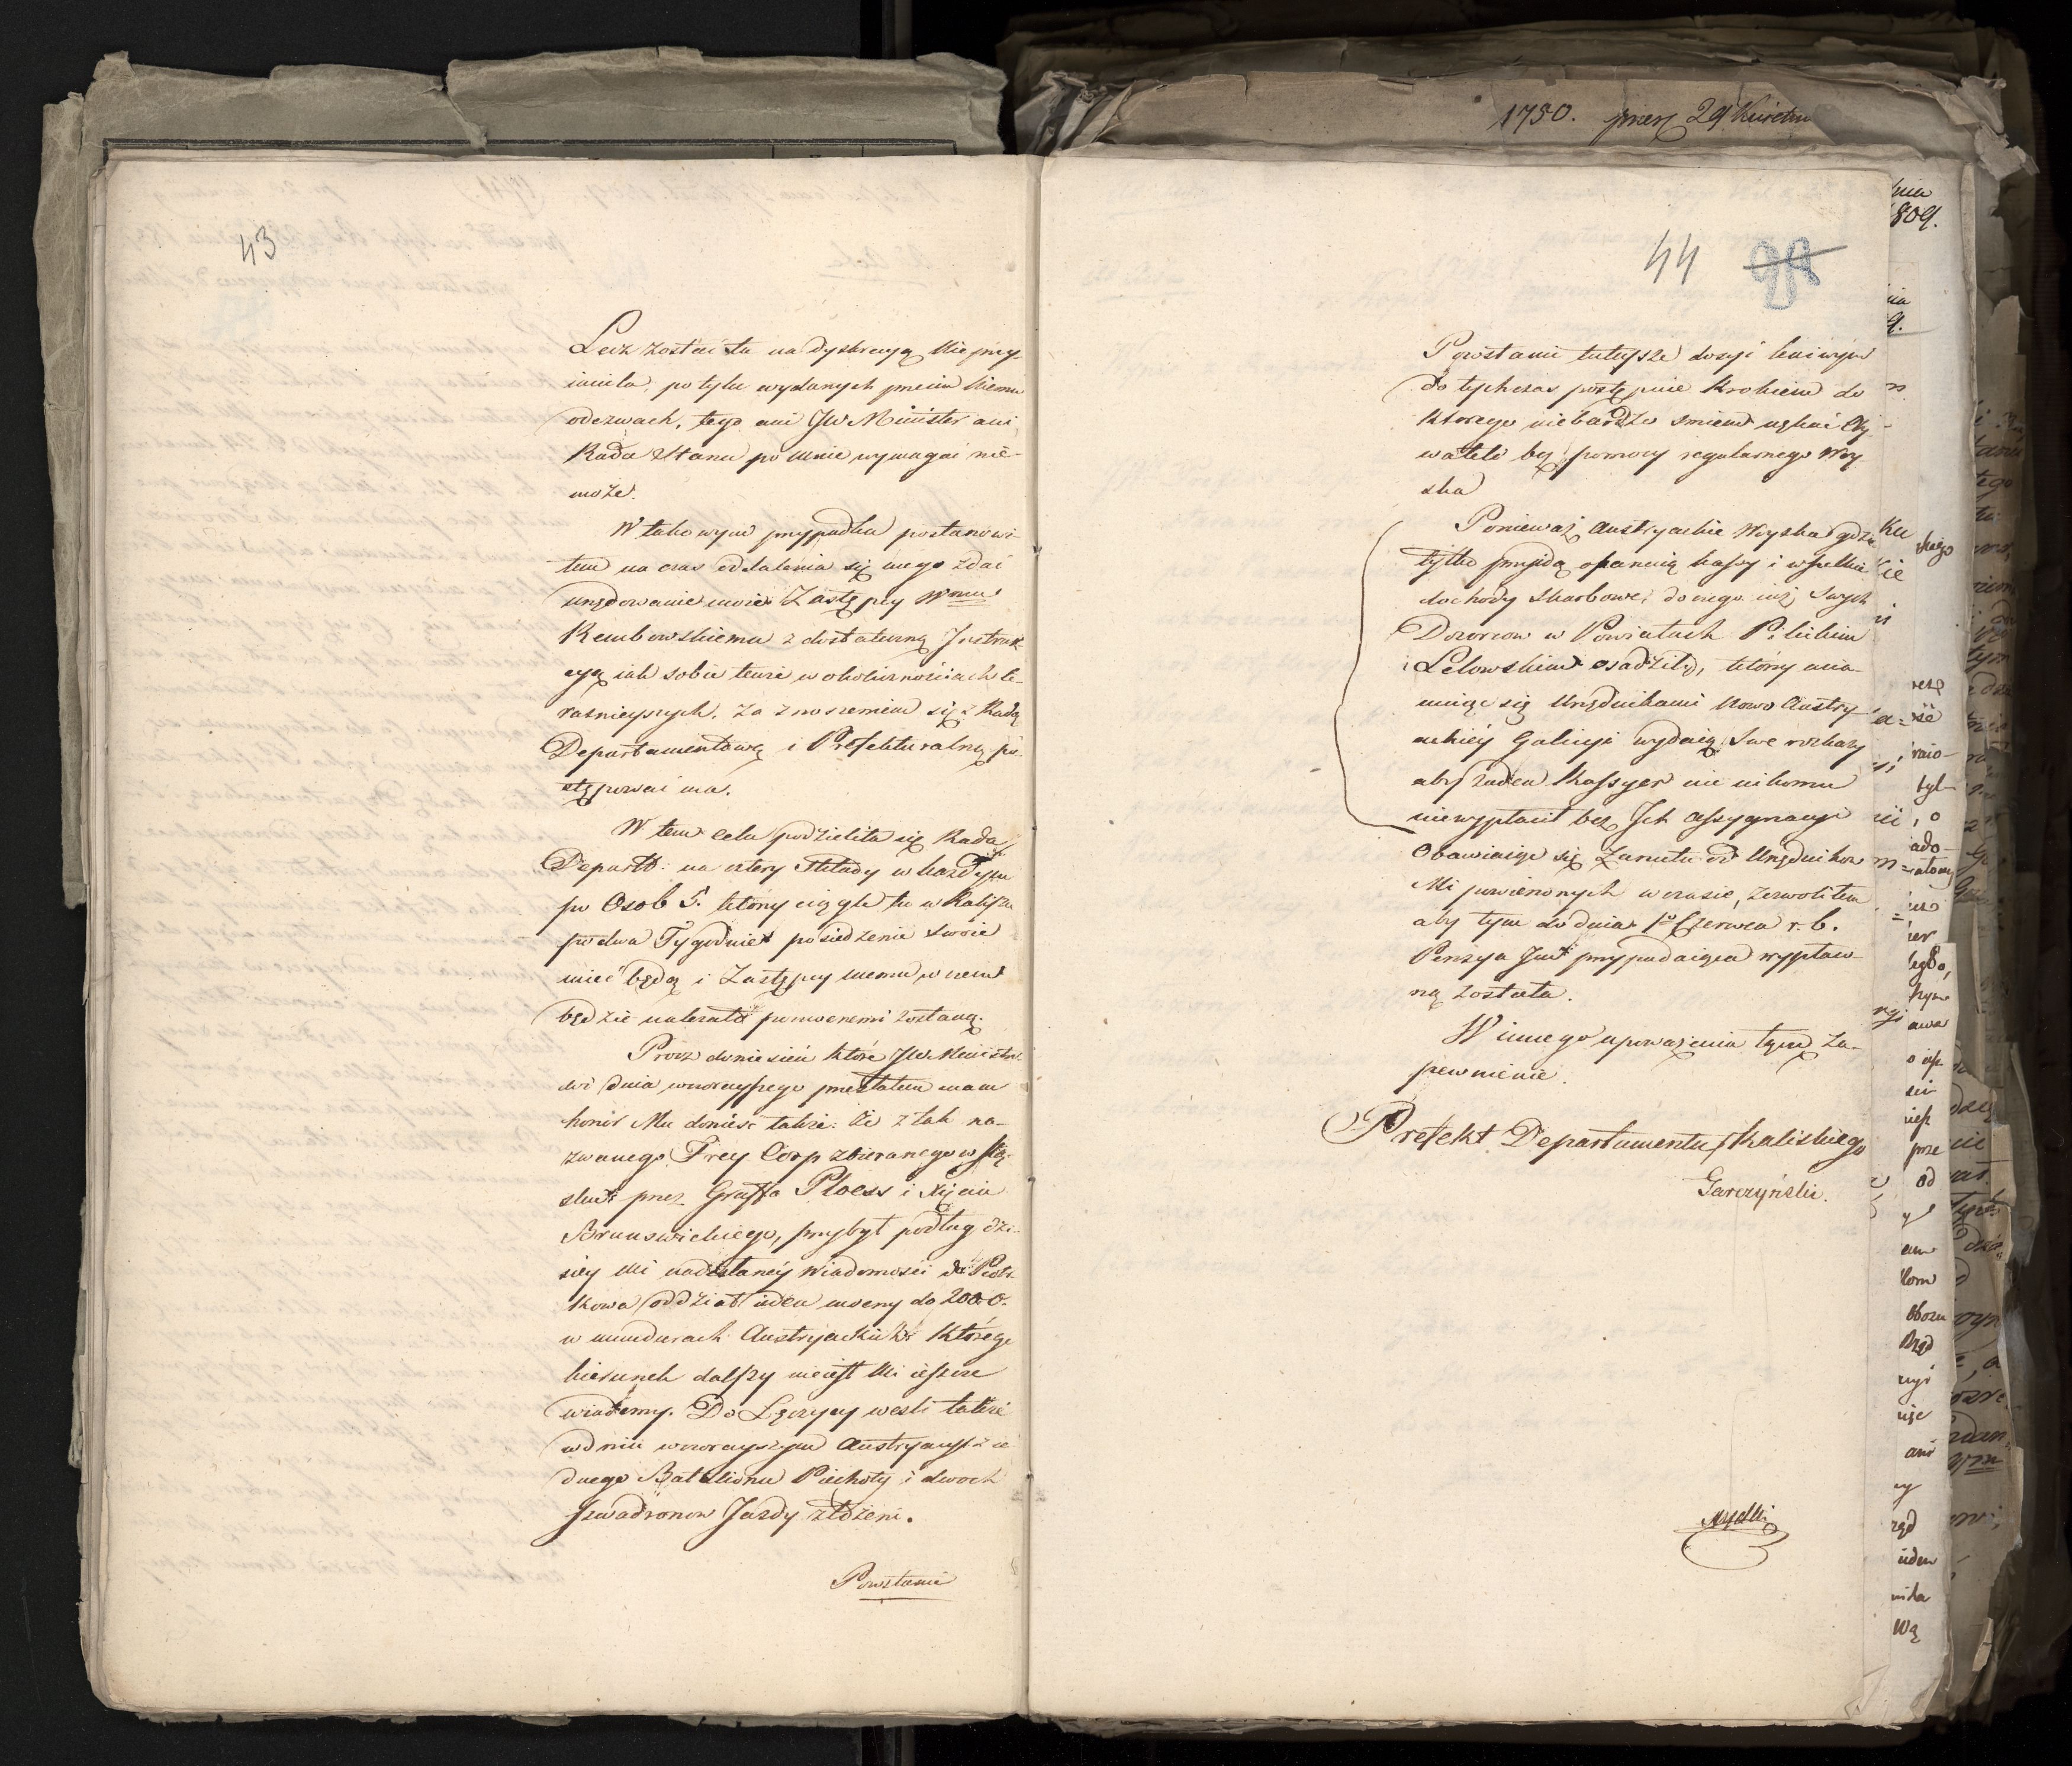 43
Lecz zostać tu na dyskrecyą Nieprzy-
iaciela, po tylu wydanych przeciw Niemu
odezwach, tego ani JW Minister ani
Rada Stanu po mnie wymagać nie-
może.
W takowym przypadku postanowi-
łem na czas oddalenia się mego zdać
urzędowanie moie Zastępcy Wmu
Rembowskiemu z dostateczną Instruk-
cyą iak sobie tenże w okolicznościach te-
raźnieyszych, za znoszeniem się z Radą
Departamentową i Prefekturalną po-
stępować ma.
W tem celu podzieliła się Rada
Departt: na cztery Składy w każdym
po Osob 5. który ciągle tu w Kaliszu
po dwa Tygodnie posiedzenie swoie
mieć będą i Zastępcy memu w czem
będzie należało pomocnemi zostaną.
Procz doniesień które JW Ministro-
wi dnia wczorayszego przesłałem mam
honor Mu donieść także: że z tak na-
zwanego Frey Corp zbieranego w Szlą-
sku przez Graffa Ploess i Xięcia
Brunswickiego, przybył podług dzi-
siey Mi nadesłaney wiadomości do Piotr-
kowa oddział ieden mocny do 2000.
w mundurach Austryackich którego
kierunek dalszy nie iest Mi ieszcze
wiadomy. Do Łęczycy weszli także
w dniu wczorayszym Austryacy z ie
dnego Batalionu Piechoty i dwoch
szwadronow Jazdy złożeni.
Powstanie
1750. przez 29 Kwietnia
44
Powstanie tuteysze dosyć leniwym
do tychczas postępuie krokiem do
ktorego niebardzo śmiem użnać Oby-
wateli bez pomocy regularnego Woy-
ska
Ponieważ Austryackie Woyska gdzie
tylko przyidą opanuią kassy i wszelkie
dochody skarbowe, do czego iuż swych
Dozorcow w Powiatach Pilickim
i Lelowskim osadzili, którzy mia-
nuiąc się Urzędnikami Nowo Austry-
ackiéy Galicyi wydaią swe rozkazy
aby żaden Kassyer nic nikomu
niewypłacił bez Ich Assygnacyi
Obawiaiąc się Zarzutu od Urzędnikow
Mi powierzonych w czasie, zezwoliłem
aby tym do dnia 1o Czerwca r. b.
Penzya Im przypadaiąca wypłaco-
ną została.
Winnego upoważenia łączę Za-
pewnienie.
Prefekt Departamentu Kaliskiego
Garczyński.